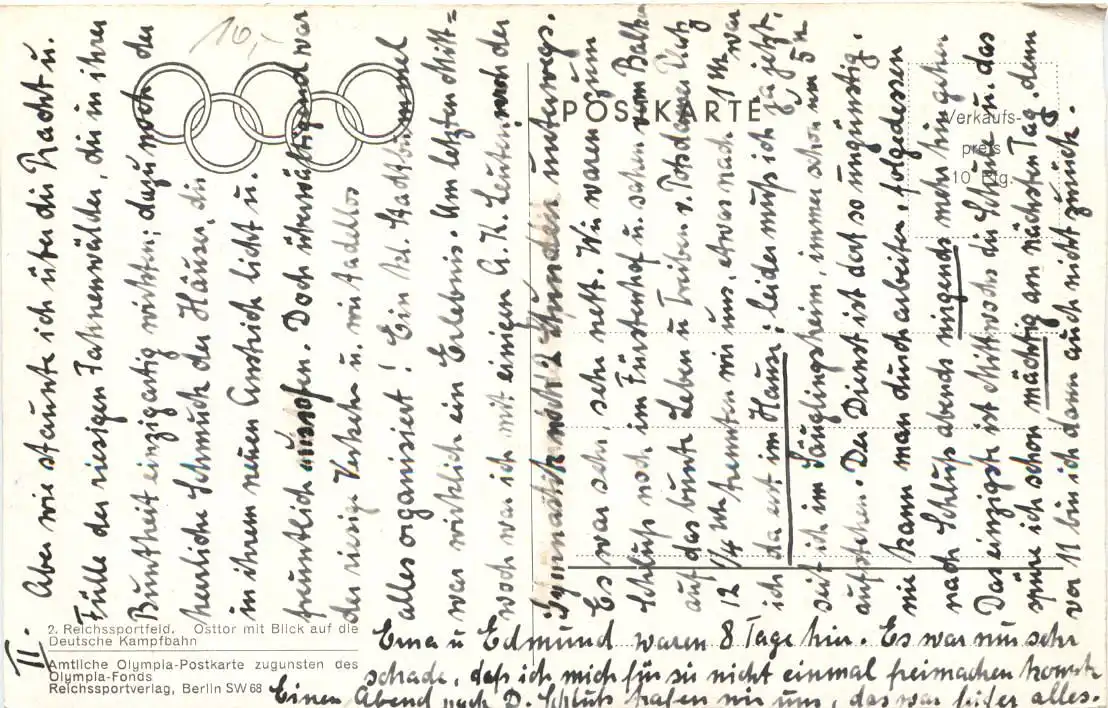 Aber wie staunte ich über die Pracht u.
Fülle der riesigen Fahnenwälder, die in ihrer
Buntheit einzigartig wirkten; dazu noch der
herrliche Schmuck der Häuser, die
in ihrem neuen Anstrich licht u.
freundlich aussahen. Doch überwältigend war
der riesige Verkehr u. wie tadellos
alles organisiert! Ein Stadtbummel
war wirklich ein Erlebnis. Am letzten Mitt=
woch war ich mit einigen Leuten von der
Gymnastik noch 2 Stündlein unterwegs.
Es war sehr, sehr nett. Wir waren zum
Schluß noch im Fürstenhof u. sahen vom Balkon
auf das bunte Leben u. Treiben v. Potsdamer Platz
12 1/4 Uhr trennten wir uns, etwas nach 1 Uhr war
ich da erst im Hause; leider muß ich ja jetzt,
seit ich im Säuglingsheim, immer schon um 5 h
aufstehen. Der Dienst ist dort so ungünstig.
nie kann man durcharbeiten, folgedessen
nach Schluß abends nirgends mehr hingehen
Das einzigste ist Mittwochs die Schule u. das
spüre ich schon mächtig am nächsten Tag, denn
vor 11 bin ich dann auch nicht zurück.
Erna u Edmund waren 8 Tage hier. Es war nun sehr
schade, daß ich mich für sie nicht einmal freimachen konnte
Einen Abend nach D. Schluß trafen wir uns, das war alles.
II.
10,-
POSTKARTE
Verkaufs-
preis
10 Pfg.
2. Reichssportfeld. Osttor mit Blick auf die
Deutsche Kampfbahn
Amtliche Olympia-Postkarte zugunsten des
Olympia-Fonds
Reichssportverlag, Berlin SW 68